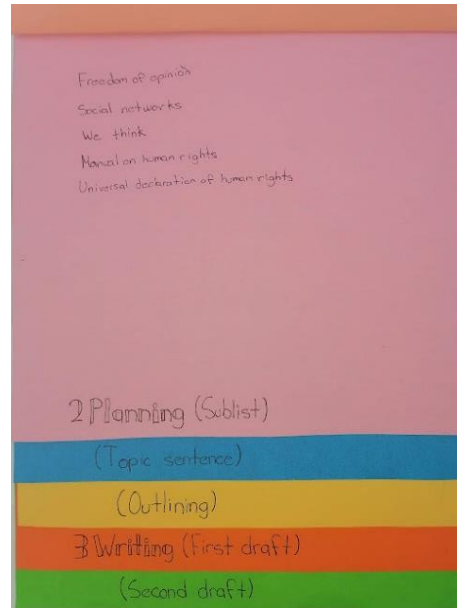 Freedom of opinion
Social networks
We think
Manual on human rights
Universal declaration of human rights
2 Planning (Sublist)
(Topic sentence)
(Outlining)
3 Writing (First draft)
(Second draft)